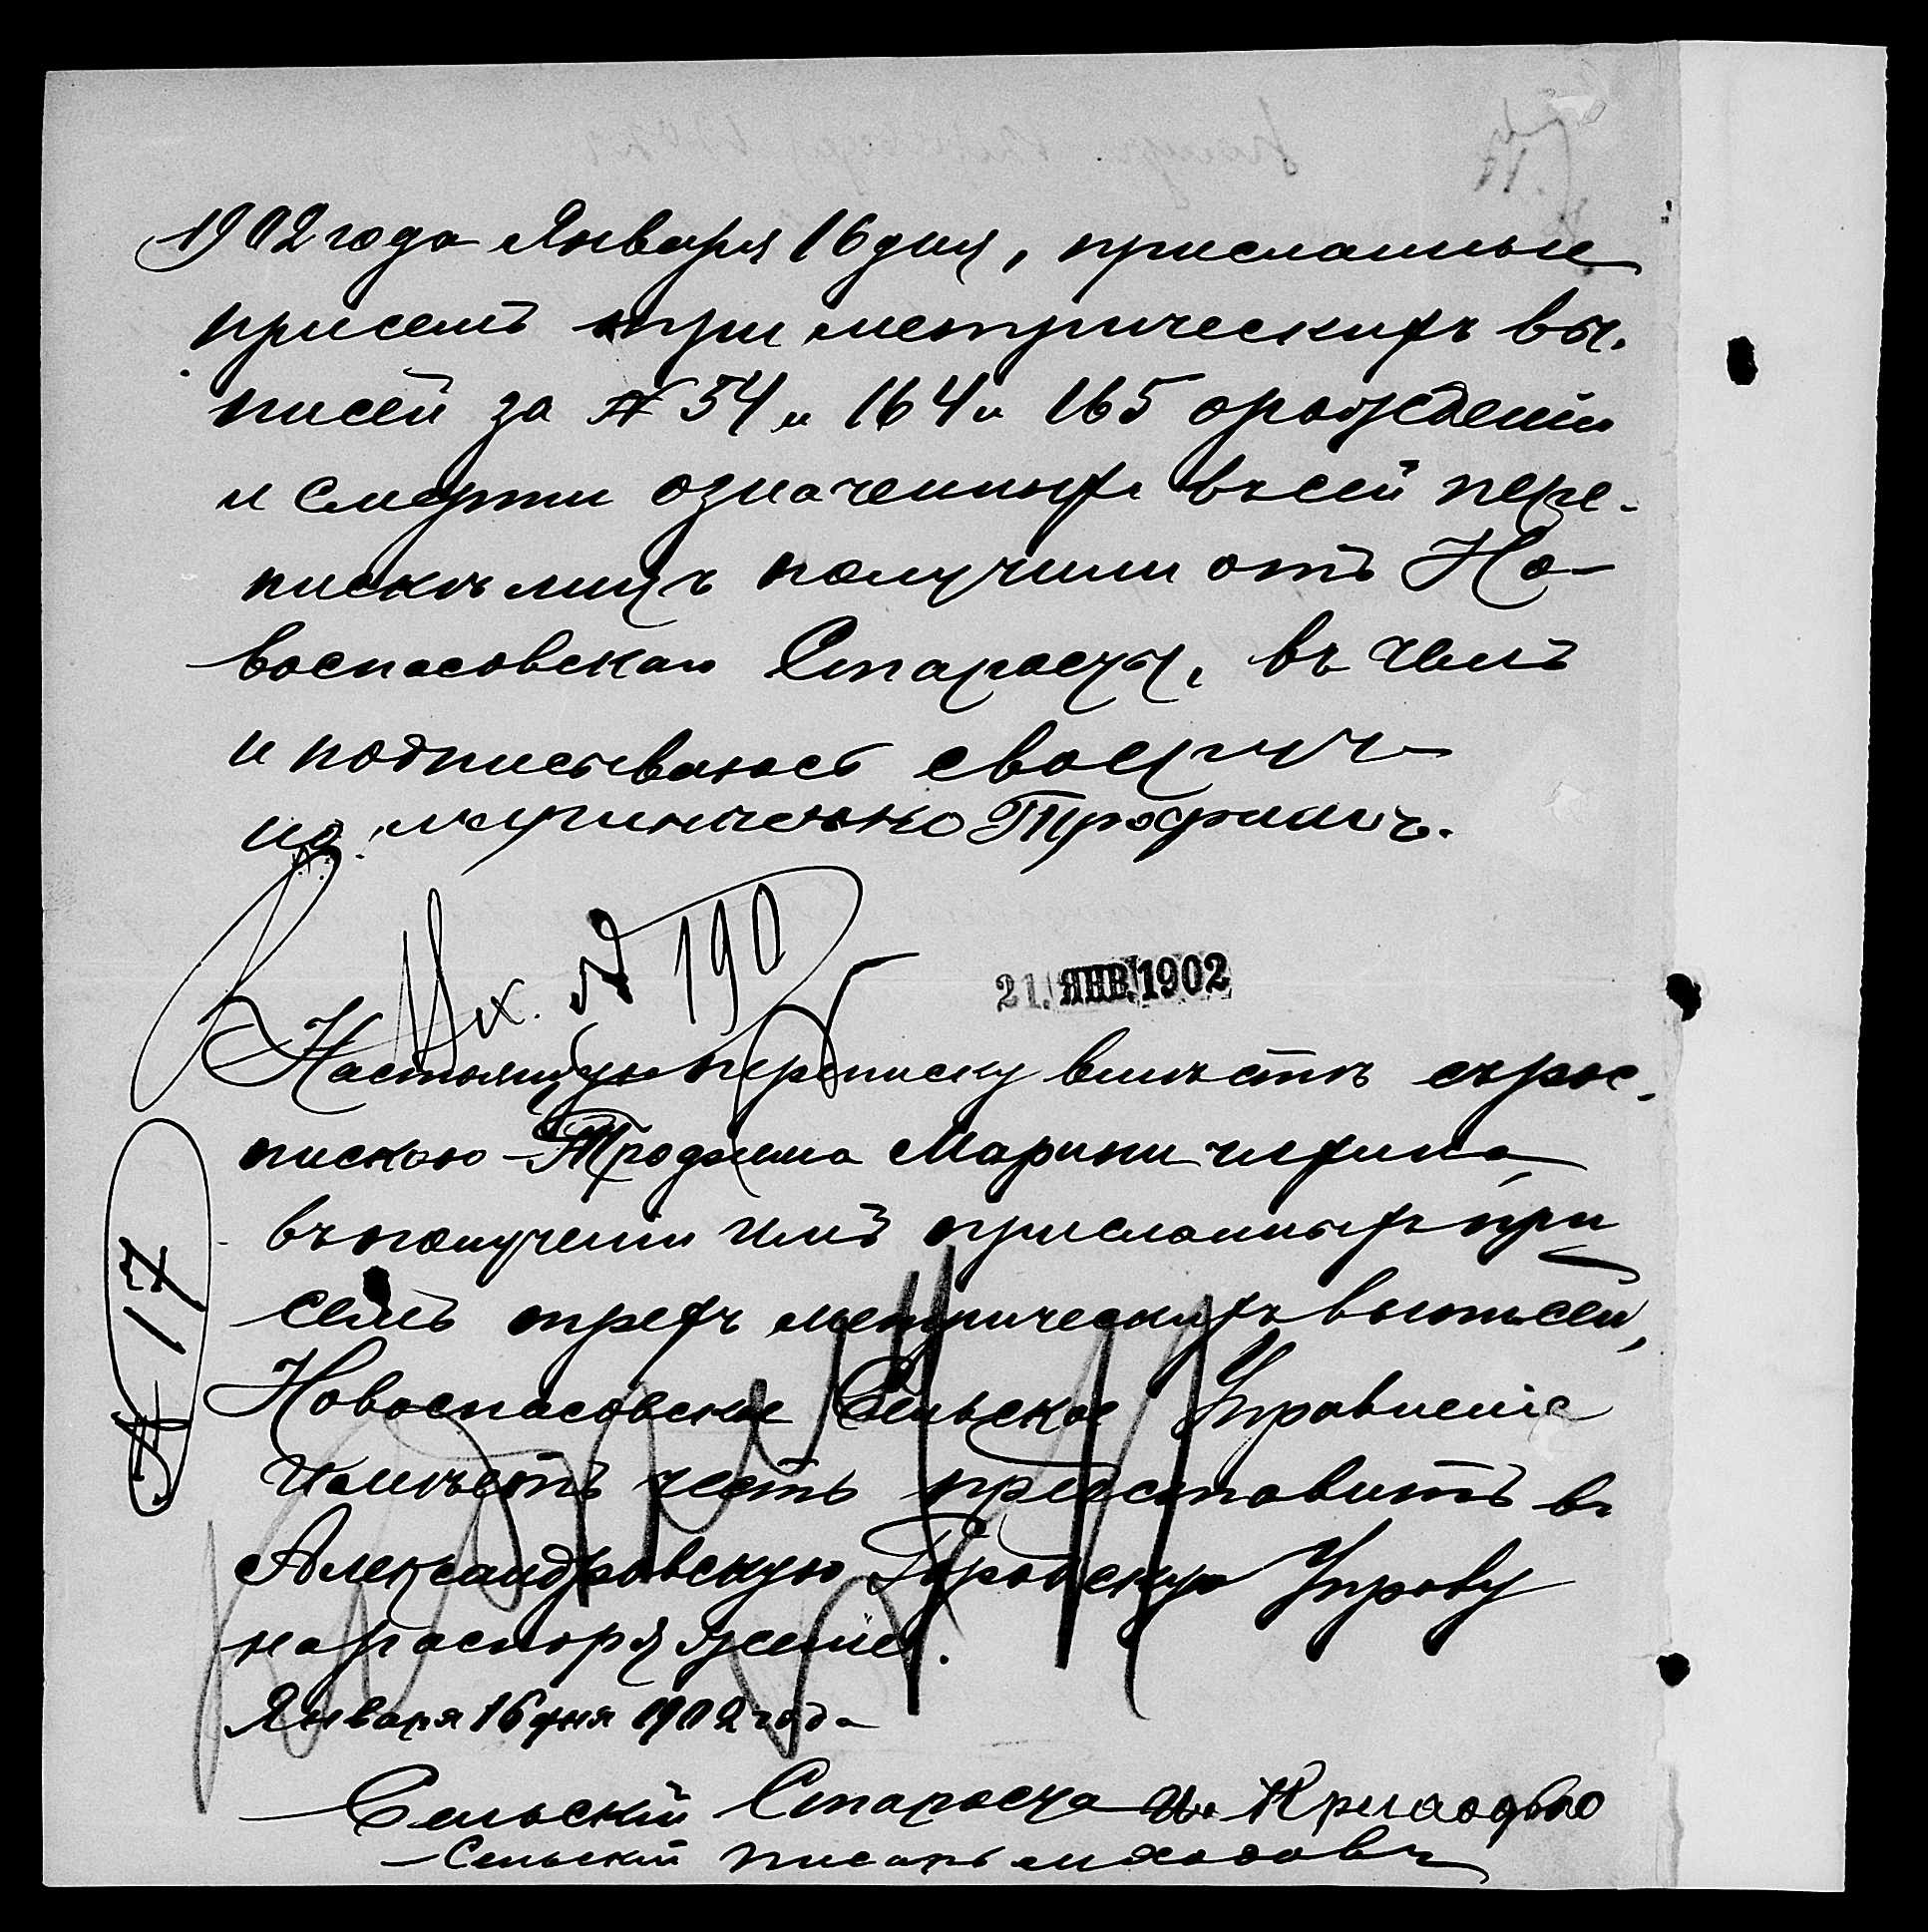 1902 года Января 16 дня, присланные
присемъ три метрическихъ вы-
писей за № 54 и 164 и 165 орождении
и смерти означенныхъ въсей пере-
пискѣ лицъ получили отъ Но-
воспасовскаго Старосты, въ чемъ
и подписываюсь своеручь-
но Трофимъ.
Вх. № 190
21. ЯНВ. 1902
Настоящую переписку вмѣстѣ съ рос-
пискою Трофима
въполучении имъ присланныхъ при
семъ трехъ метрическихъ выписей,
Новоспасовское Сельское Управленіе
имѣетъ честь представить въ
Александровскую Городскую Управу
нараспоряженіе.
Января 16 дня 1902 года
Сельскій Староста
Сельскій писарь
№ 17